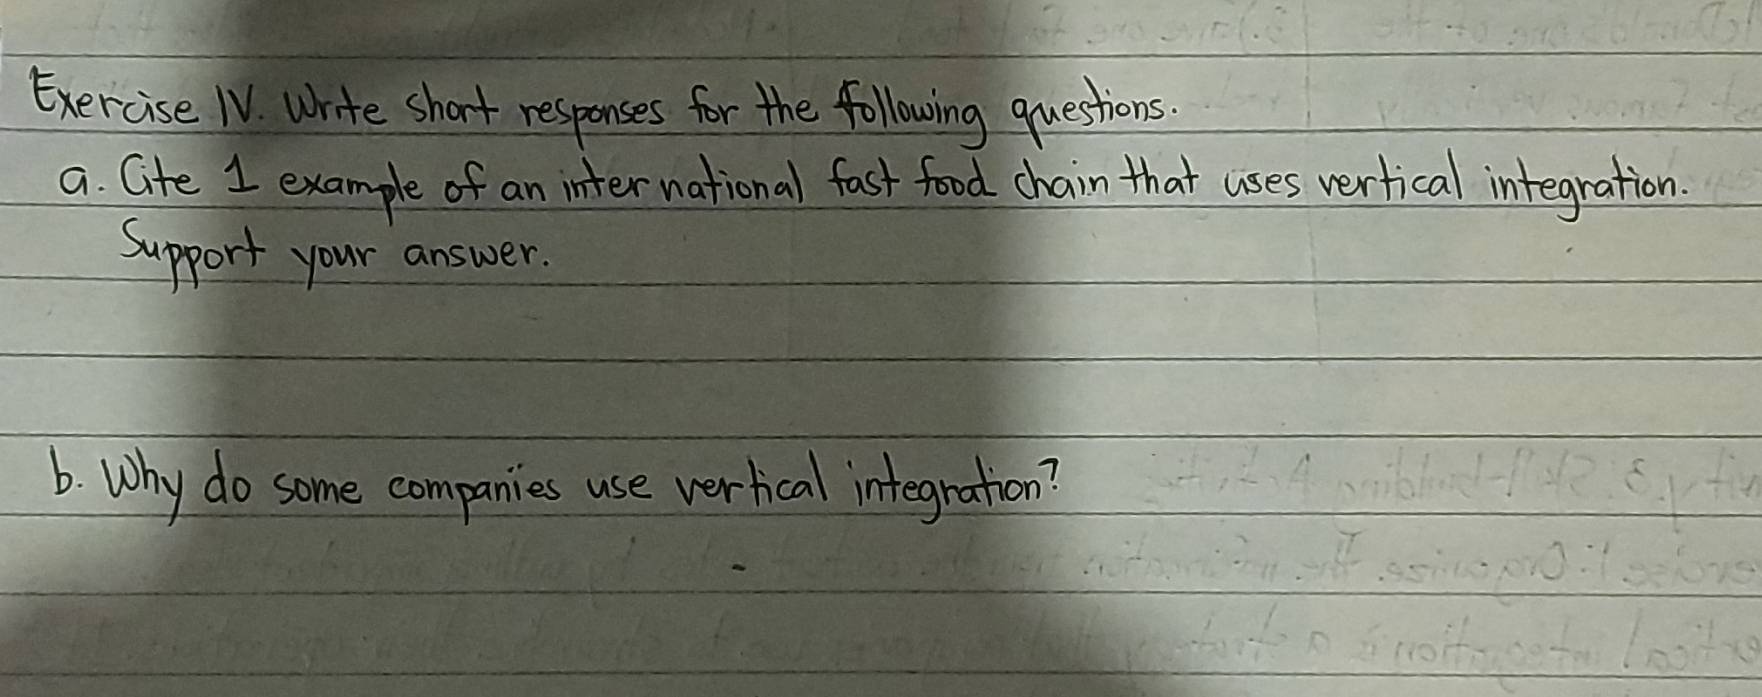 Exercise IV. Write short responses for the following questions.
a. Cite 1 example of an international fast food chain that uses vertical integration.
Support your answer.
b. Why do some companies use vertical integration?